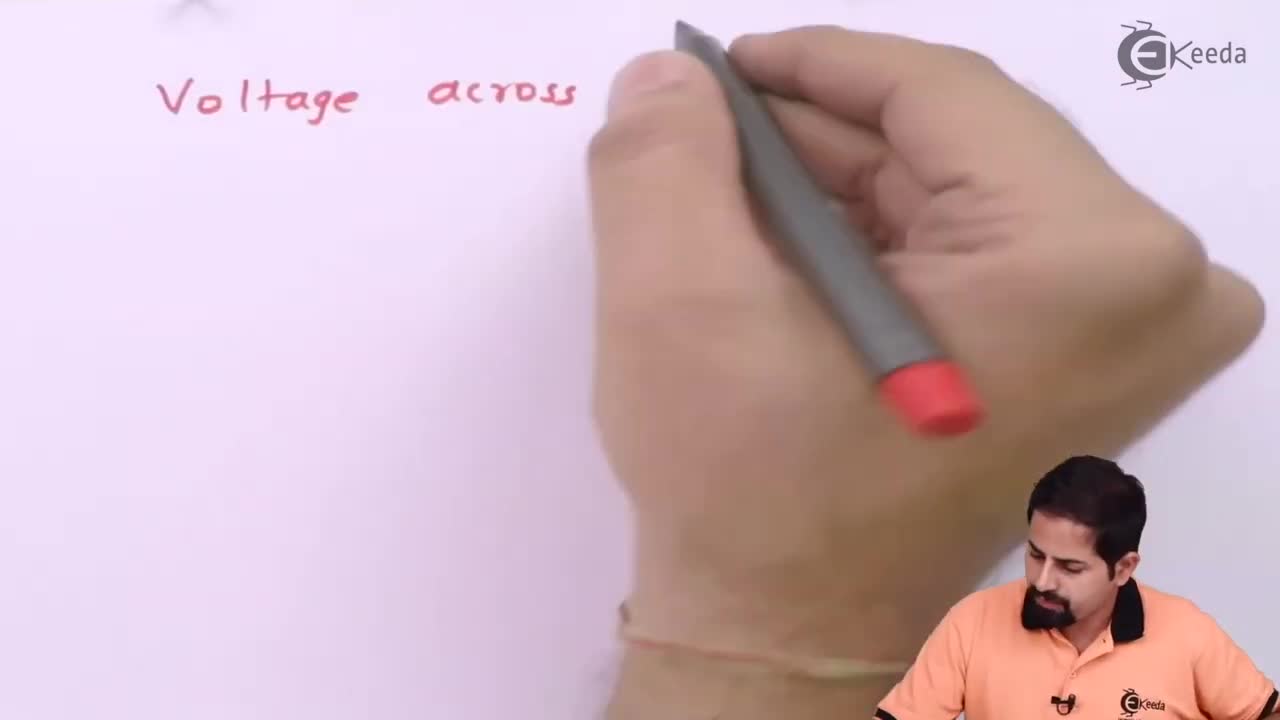 Voltage across
EKeeda
EKeeda